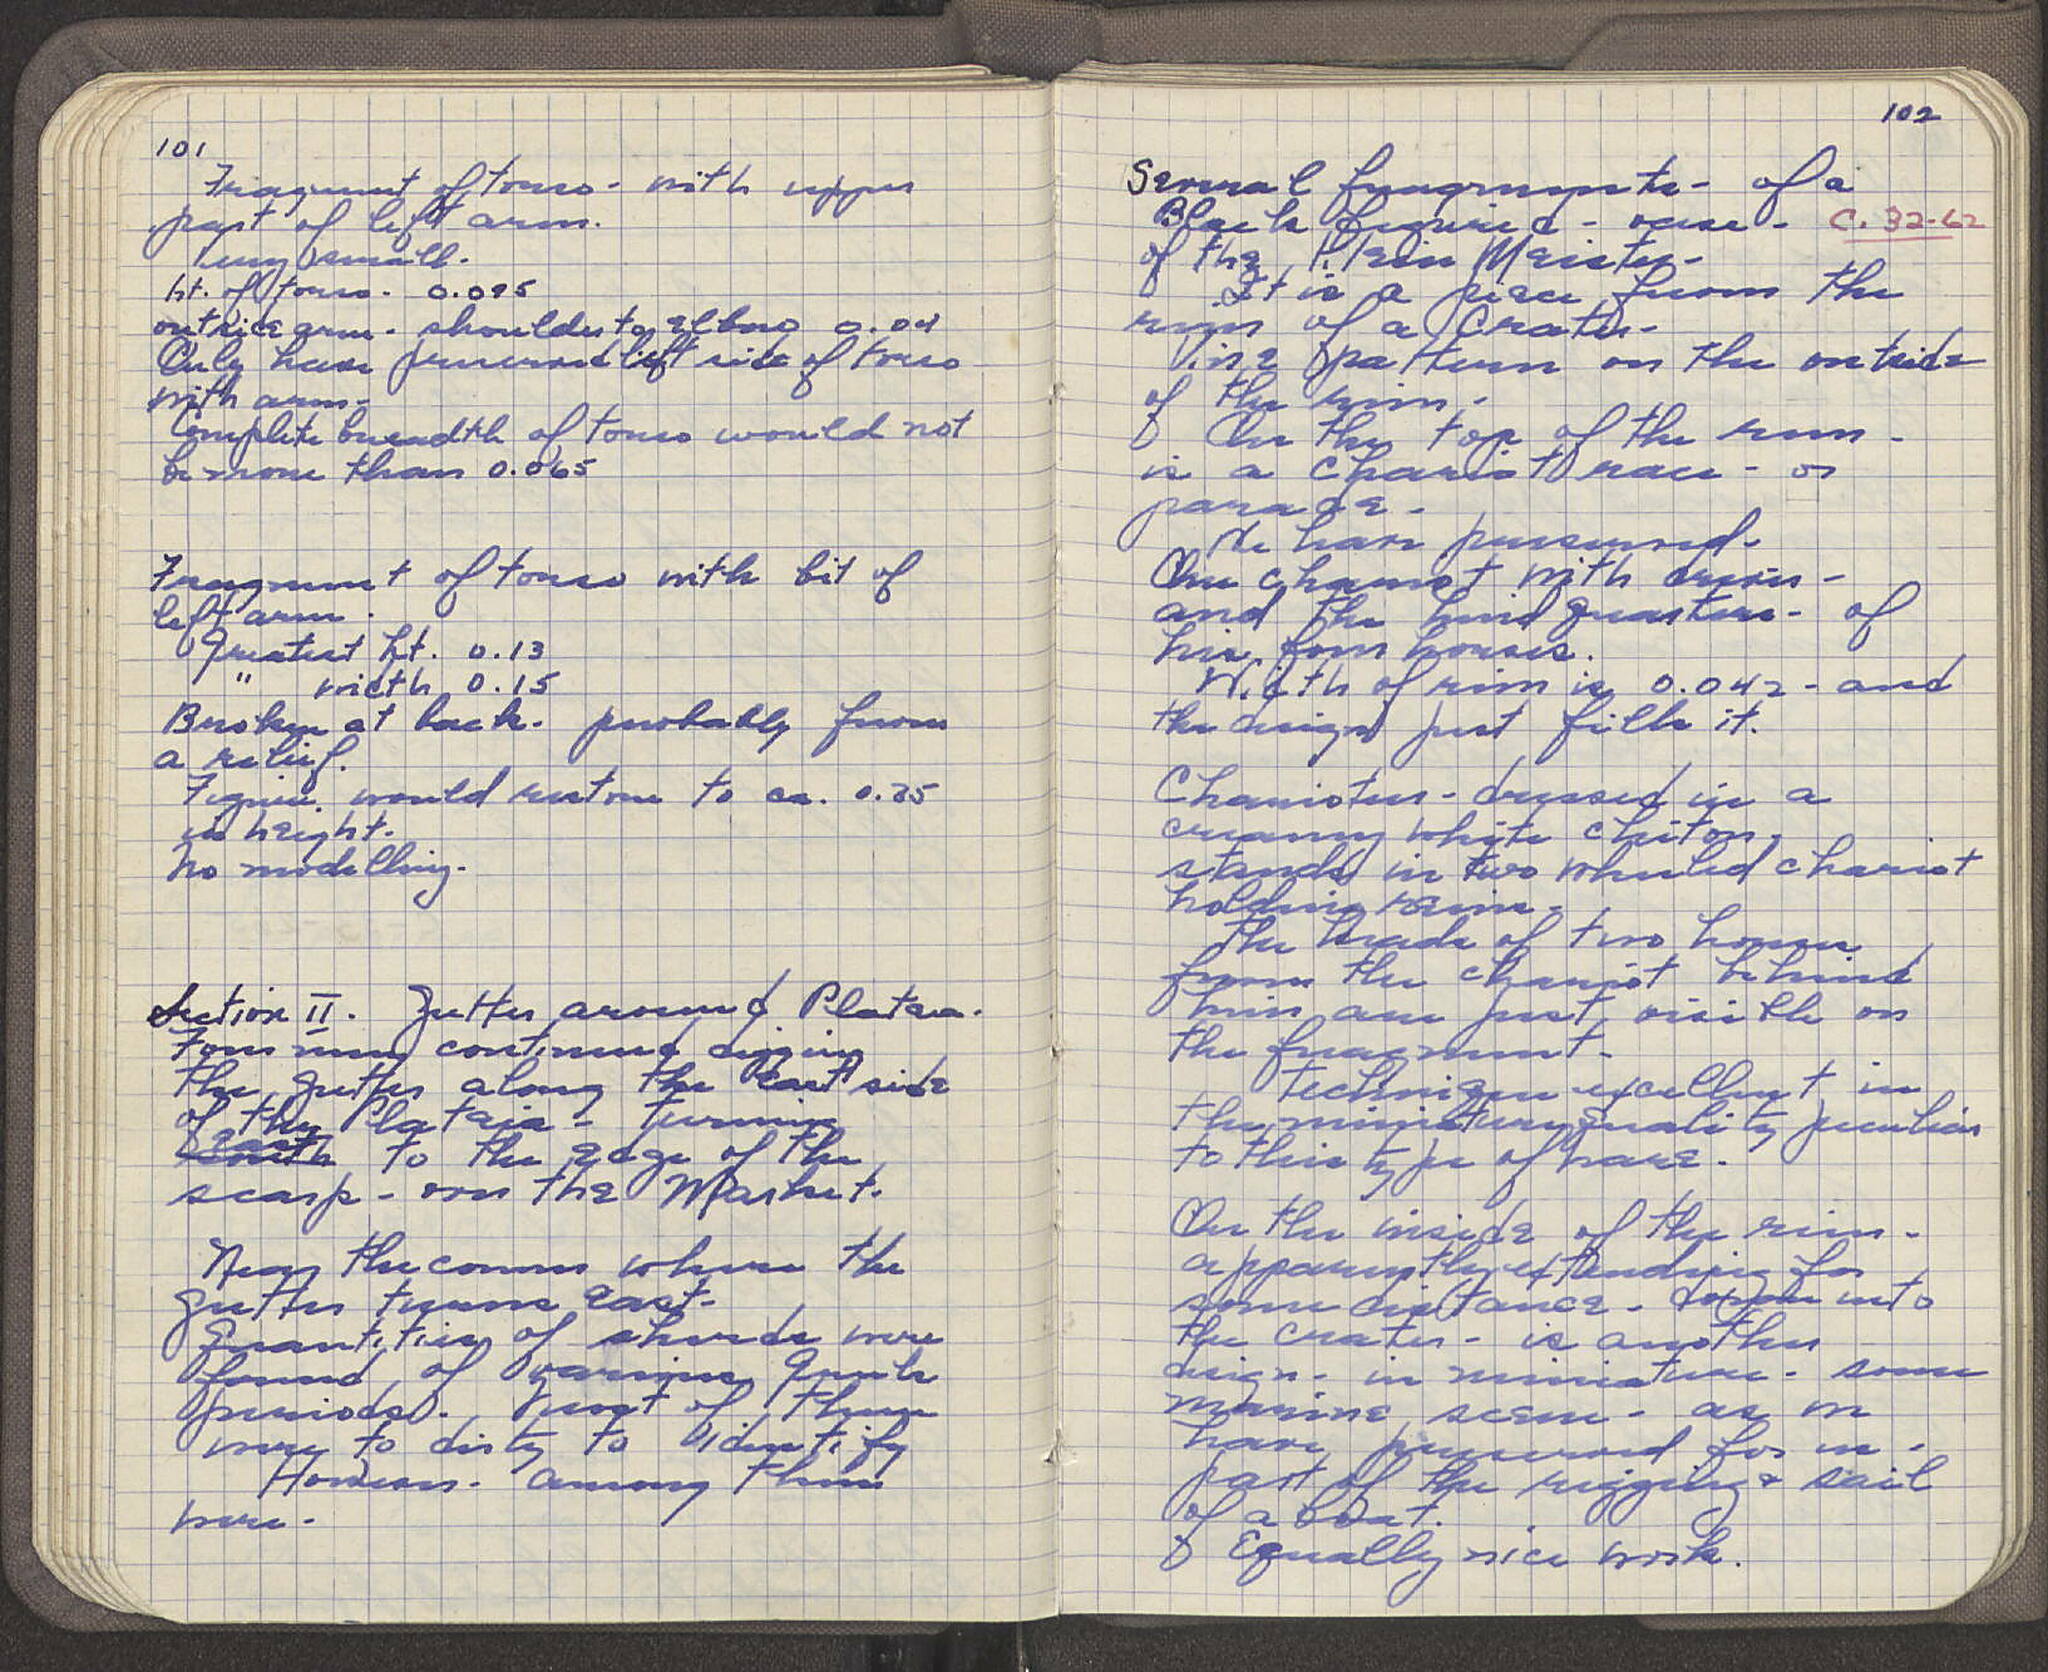 101
Fragment of torso - with upper
part of left arm.
Very small.
ht. of torso - 0.095
outside arm - shoulder to elbow 0.04
Only have preserved left side of torso
with arm -
Complete breadth of torso would not
be more than 0.065
Fragment of torso with bit of
left arm.
Greatest ht. 0.13
" width 0.15
Broken at back - probably from
a relief.
Figure would restore to ca. 0.35
in height.
No modelling -
Section II. Gutter around Plateia -
Four men continued digging
the gutter along the East side
of the Plateia - turning
east
south to the edge of the
scarp - over the Market.
Near the corner where the
gutter turns East -
Quantities of sherds were
found of various Greek
periods. Most of them
were to dirty to identify
However - among them
were -
102
Several fragments - of a
Black figured - vase - C. 32-62
of the Klein Meister -
It is a piece from the
rim of a Crater -
Vine pattern on the outside
of the rim -
On the top of the rim -
is a chariot race - or
parade -
We have preserved -
One chariot with driver -
and the hind quarters - of
his four horses.
Width of rim is 0.042 - and
the design just fills it.
Charioteer - dressed in a
creamy white chiton,
stands in two wheeled chariot
holding reins -
The heads of two horses
from the chariot behind
him are just visible on
the fragment -
Technique excellent in
the miniature quality peculiar
to this type of ware -
On the inside of the rim -
apparently extending for
some distance - down into
the crater - is another
design - in miniature - some
marine scene - as we
have preserved for us -
part of the rigging & sail
of a boat.
Equally nice work.